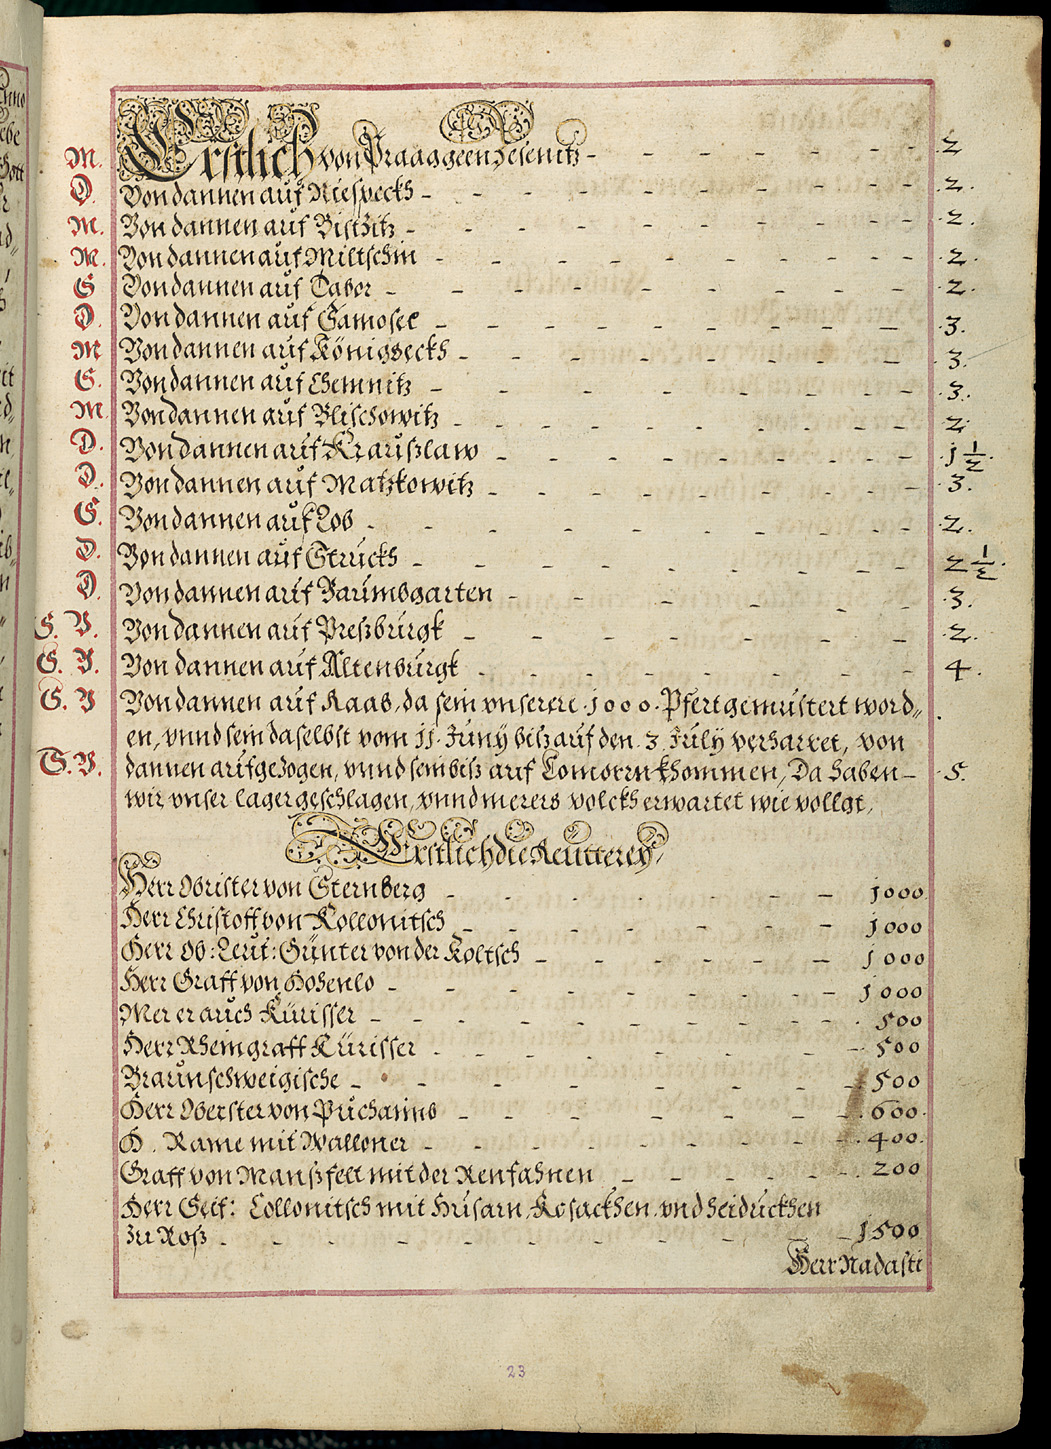 M. Erstlich von Praag geen Jesenitz - - - - - - - .2
D. Von dannen auf Niespeckh - - - - - - - .2.
M. Von dannen auf Bistzitz - - - - - - - - .2.
M. Von dannen auf Miltschin - - - - - - - - .2.
S Von dannen auf Tabor - - - - - - - .2.
D. Von dannen auf Samosel - - - - - - - .3.
M Von dannen auf Königseckh - - - - - - - .3.
S. Von dannen auf Chemnitz - - - - - - .3.
M. Von dannen auf Blischowitz - - - - - - - 2.
D. Von dannen auf Krausslaw - - - - - - - .j ½.
D. Von dannen auf Matzkowitz - - - - - - - .3.
S. Von dannen auf Lob - - - - - - - - .2.
D. Von dannen auf Strücks - - - - - - - - 2 ½.
D. Von dannen auf Baumbgarten - - - - - - .3.
S. V. Von dannen auf Preßburgk - - - - - - - .2.
S. V. Von dannen auf Altenburgk - - - - - - - 4.
S. V Von dannen auf Raab, da sein vnserere .j000. Pfert gemustert word„
en, vnnd sein daselbst vom jj. Juny bisz auf den .3. July verharret, von
S. V. dannen aufgezogen, vnnd sein biß auf Comorrn khommen, Da haben - .5.
wir vnser lager geschlagen, vnnd merers volckh erwartet wie vollgt,
Erstlich die Reutterey,
Herr Obrister von Sternberg - - - - - - j000.
Herr Christoff von Kollonitsch - - - - - - j000
Herr Ob: Leut: Günter von der Koltsch - - - - - - j000
Herr Graff von Hohenlo - - - - - - - - j000
Mer er auch Kürisser - - - - - - - - . 500
Herr Rheingraff Kürisser - - - - - - - - 500
Braunschweigische - - - - - - - - 500
Herr Oberster von Puchaimb - - - - - - - . 600.
H. Rame mit Walloner - - - - - - - - . 400.
Graff von Manßfelt mit der Renfahnen - - - - - . 200
Herr Seif: Collonitsch mit Husarn, Kosackhen, vnd heiduckhen
zu Roß - - - - - - - - - - j500
Herr Nadasti
23